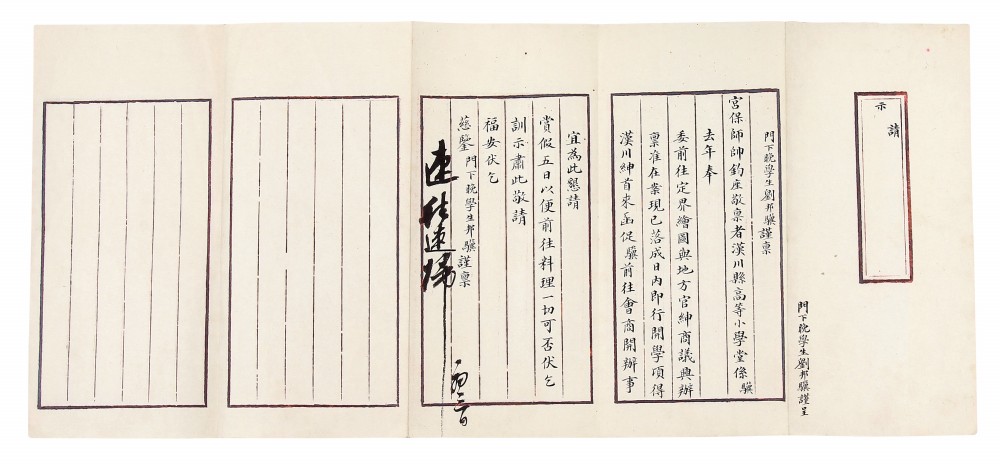 請
示
門下晚學生劉邦驥謹呈
門下晚學生劉邦驥謹稟
宮保師帥鈞座敬稟者漢川縣高等小學堂係驥
去年奉
委前往定界繪圖與地方官紳商議興辦
稟准在案現已落成日內即行開學頃得
漢川紳首來函促驥前往會商開辦事
宜為此懇請
賞假五日以便前往料理一切可否伏乞
訓示肅此敬請
福安伏乞
慈鑒門下晚學生邦驥謹稟
速往速歸